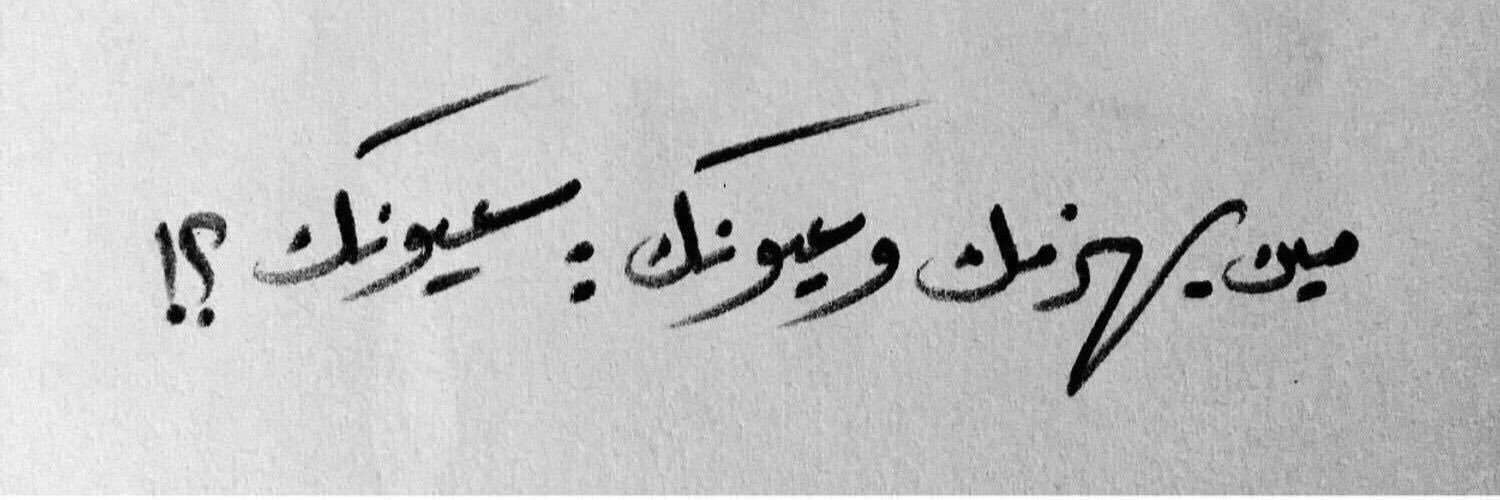 مين يهزمك وعيونك : عيونك ؟!